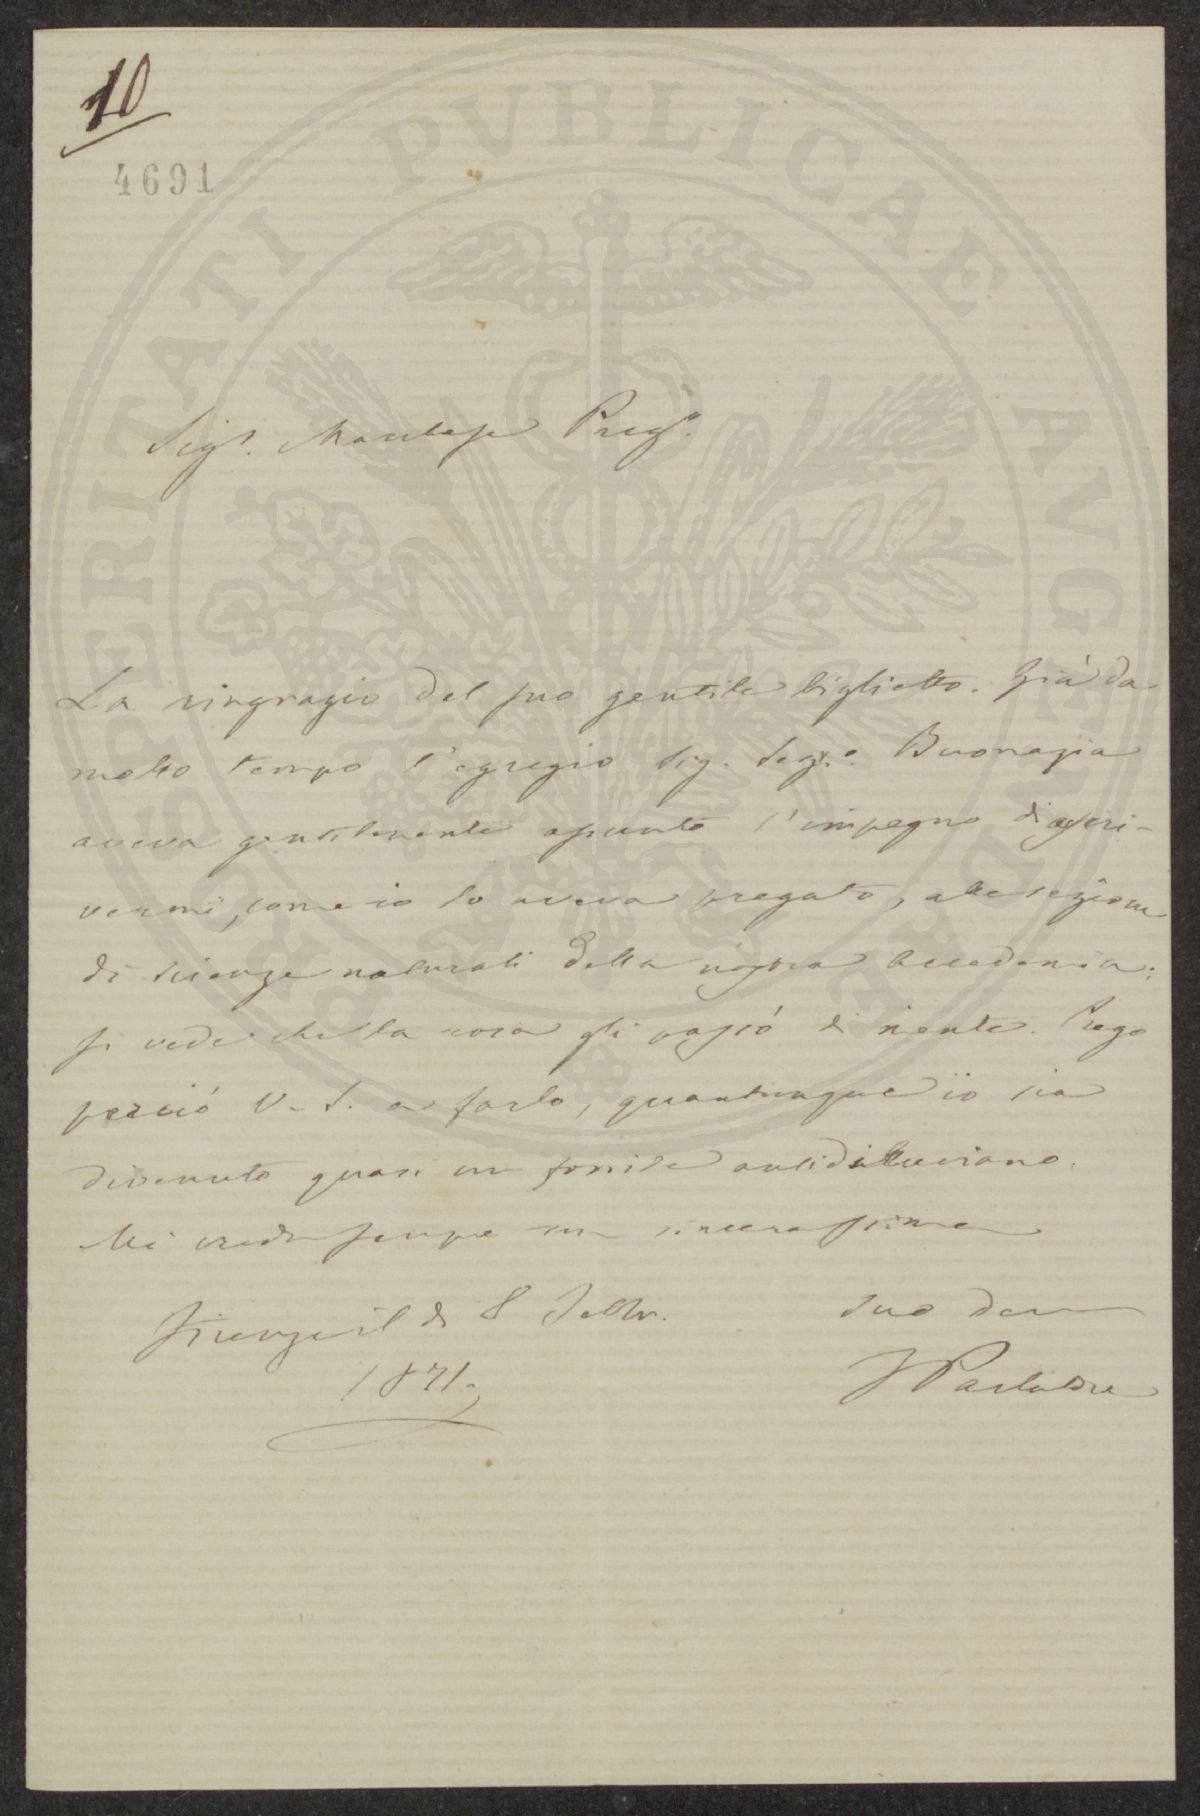 10
4691
Sigr. Marchese Preg.
La ringrazio del suo gentile biglietto. Già da
molto tempo l'egregio Sig. Segr.o Buonazia
aveva gentilmente assunto l'impegno di ascri-
vermi, come io lo aveva pregato, alla sezione
di scienze naturali della nostra Accademia:
si vede che la cosa gli passò di mente. Prego
perciò V. S. a farlo, quantunque io sia
divenuto quasi un fossile antidiluviano.
Mi creda sempre con sincera stima
Firenze il dì 8 Febbr. Suo dev
1871. Parlatore
PROSPERITATI PVBLICAE AVGENDAE